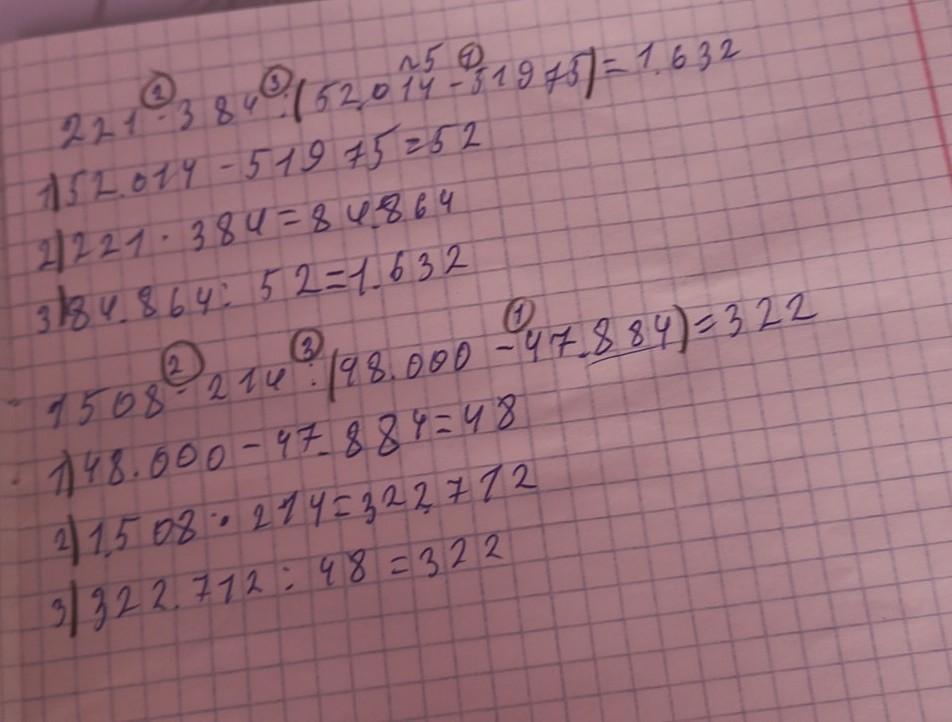 №5
221 · 384 : (52.014 - 51975) = 1.632
1) 52.014 - 51975 = 52
2) 221 · 384 = 84.864
3) 84.864 : 52 = 1.632
1508 · 214 : (48.000 - 47.884) = 322
1) 48.000 - 47.884 = 48
2) 1.508 · 214 = 322712
3) 322.712 : 48 = 322